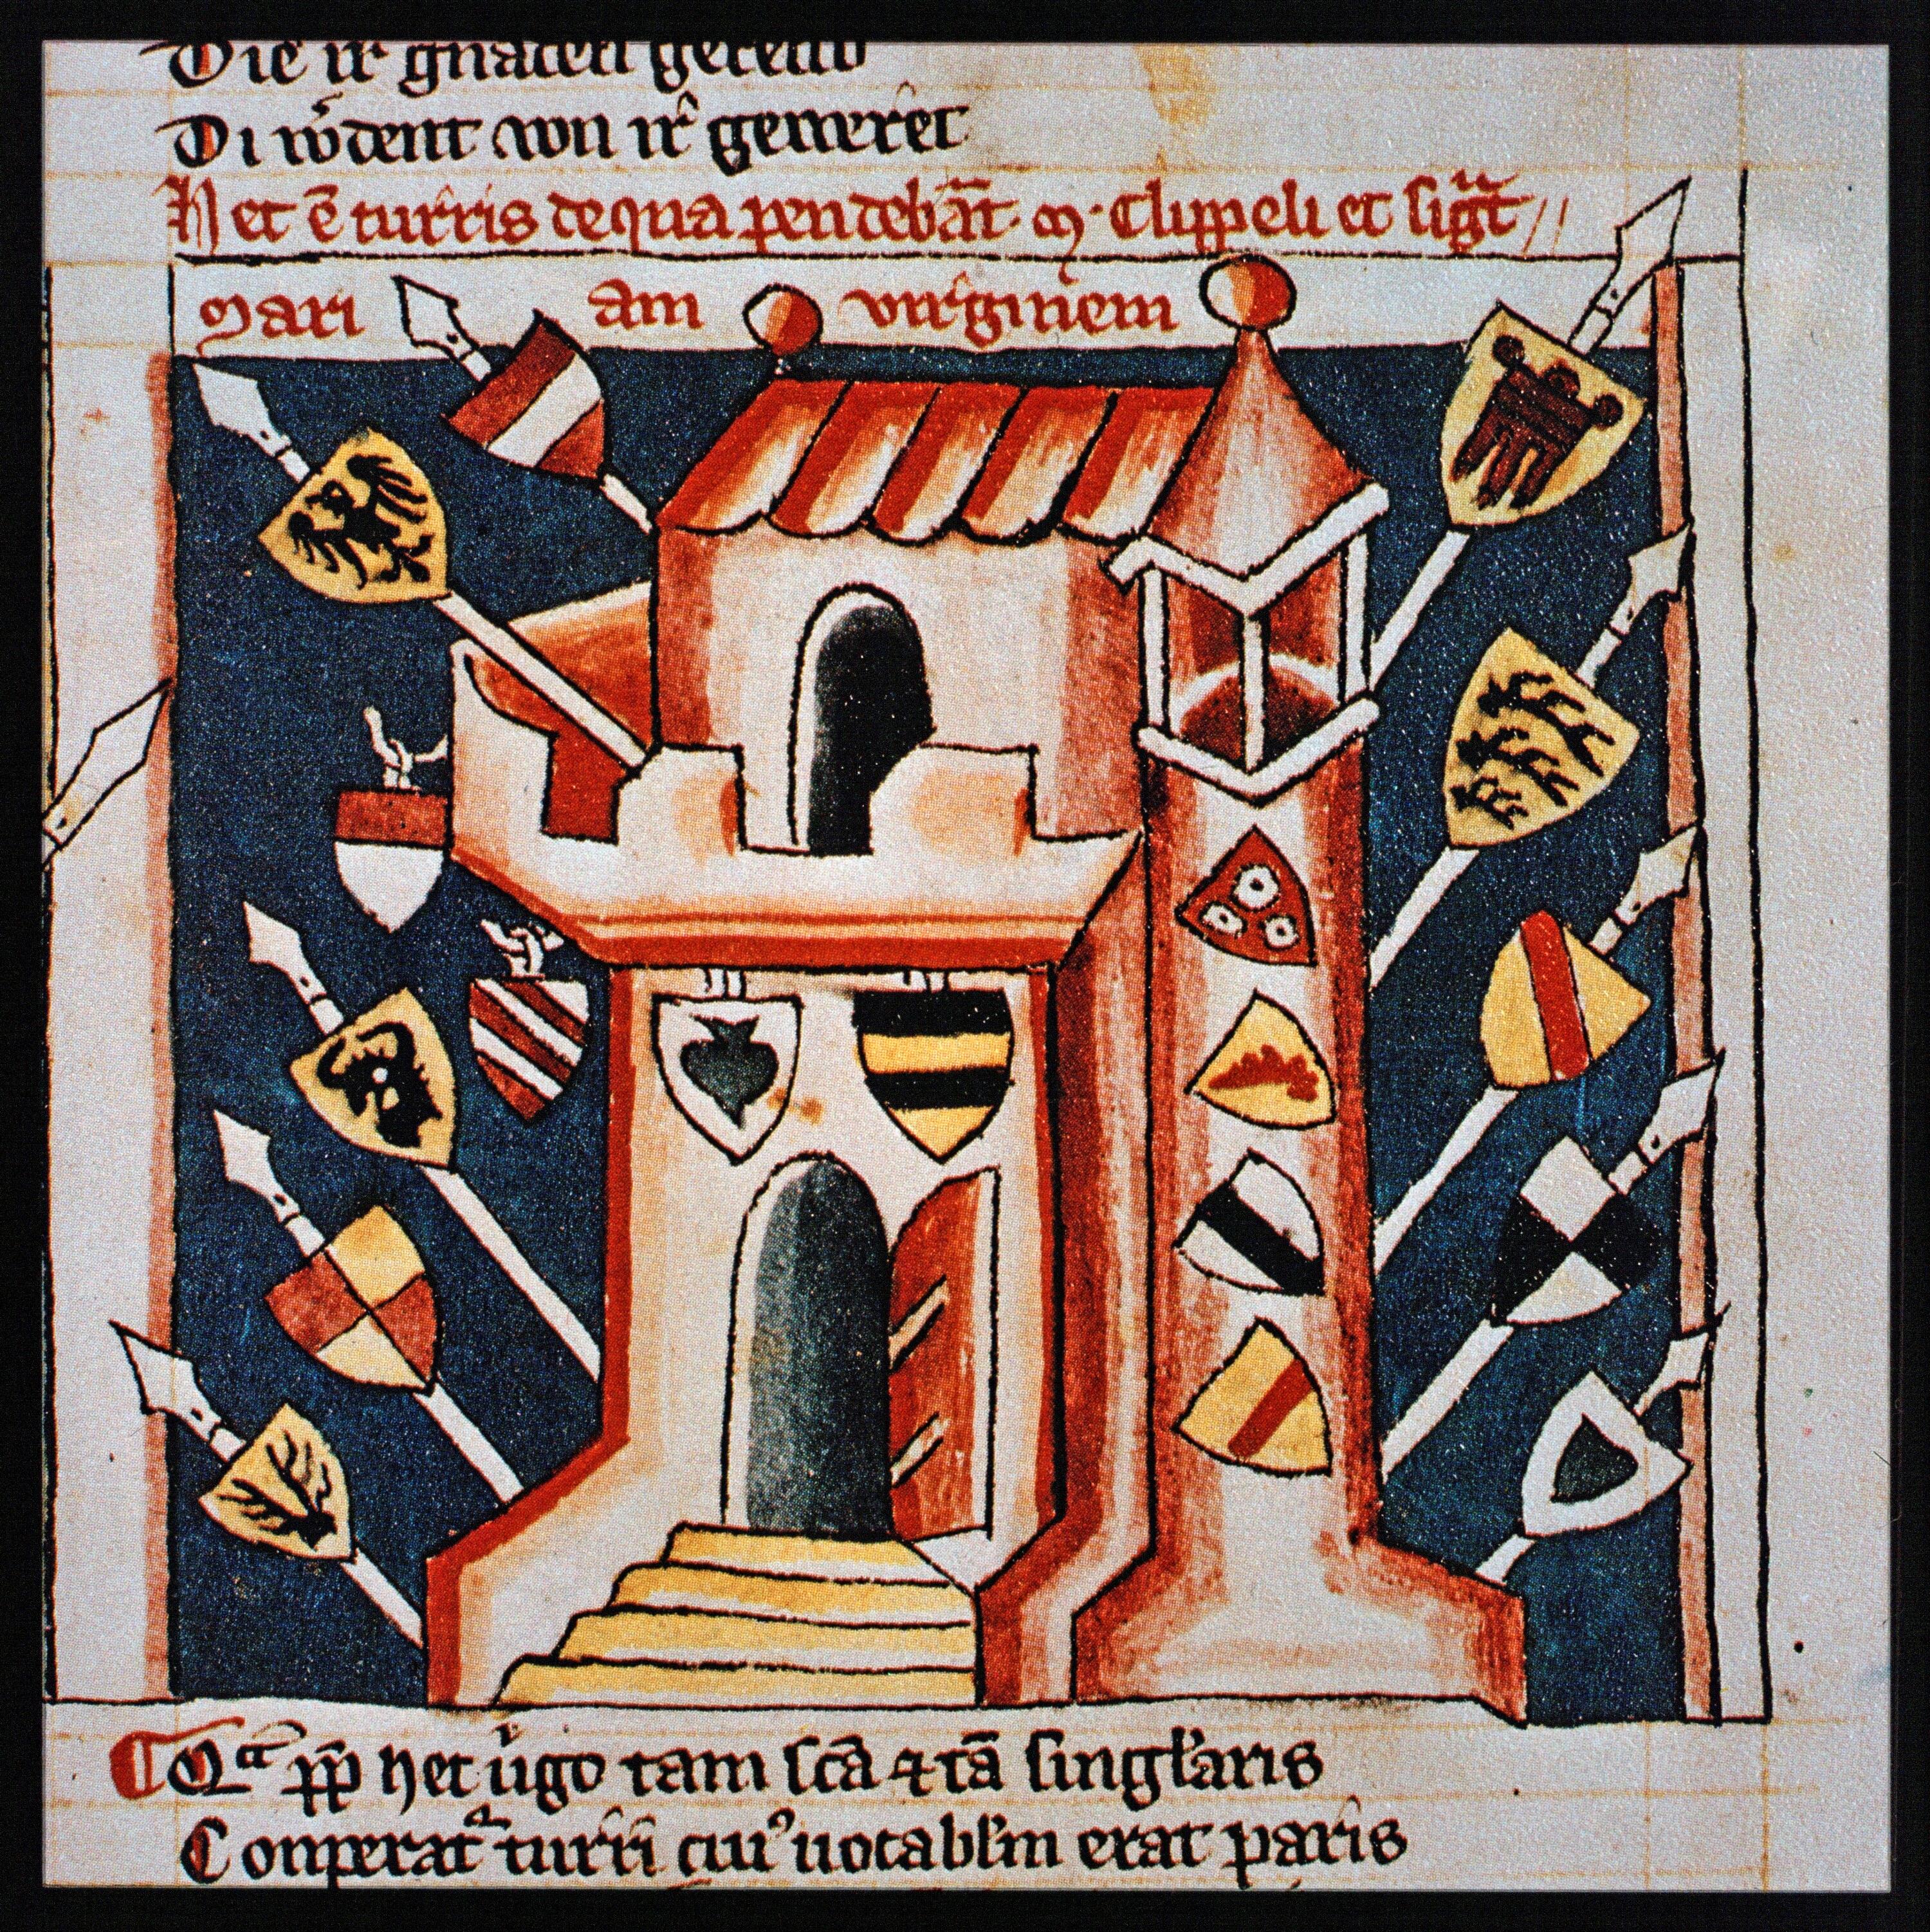 Die ir gnaden gerend
Di wͦrdent von ir geweret
Hec ē turris de qua pendebāt · M · Clippeli et sigᷓt //
Mari am virginem
Qᷓ ꝓp hec ṽgo tam scā ⁊ tā singl'aris
Conperatᷓ turri cuiꝰ notabl'm erat paris